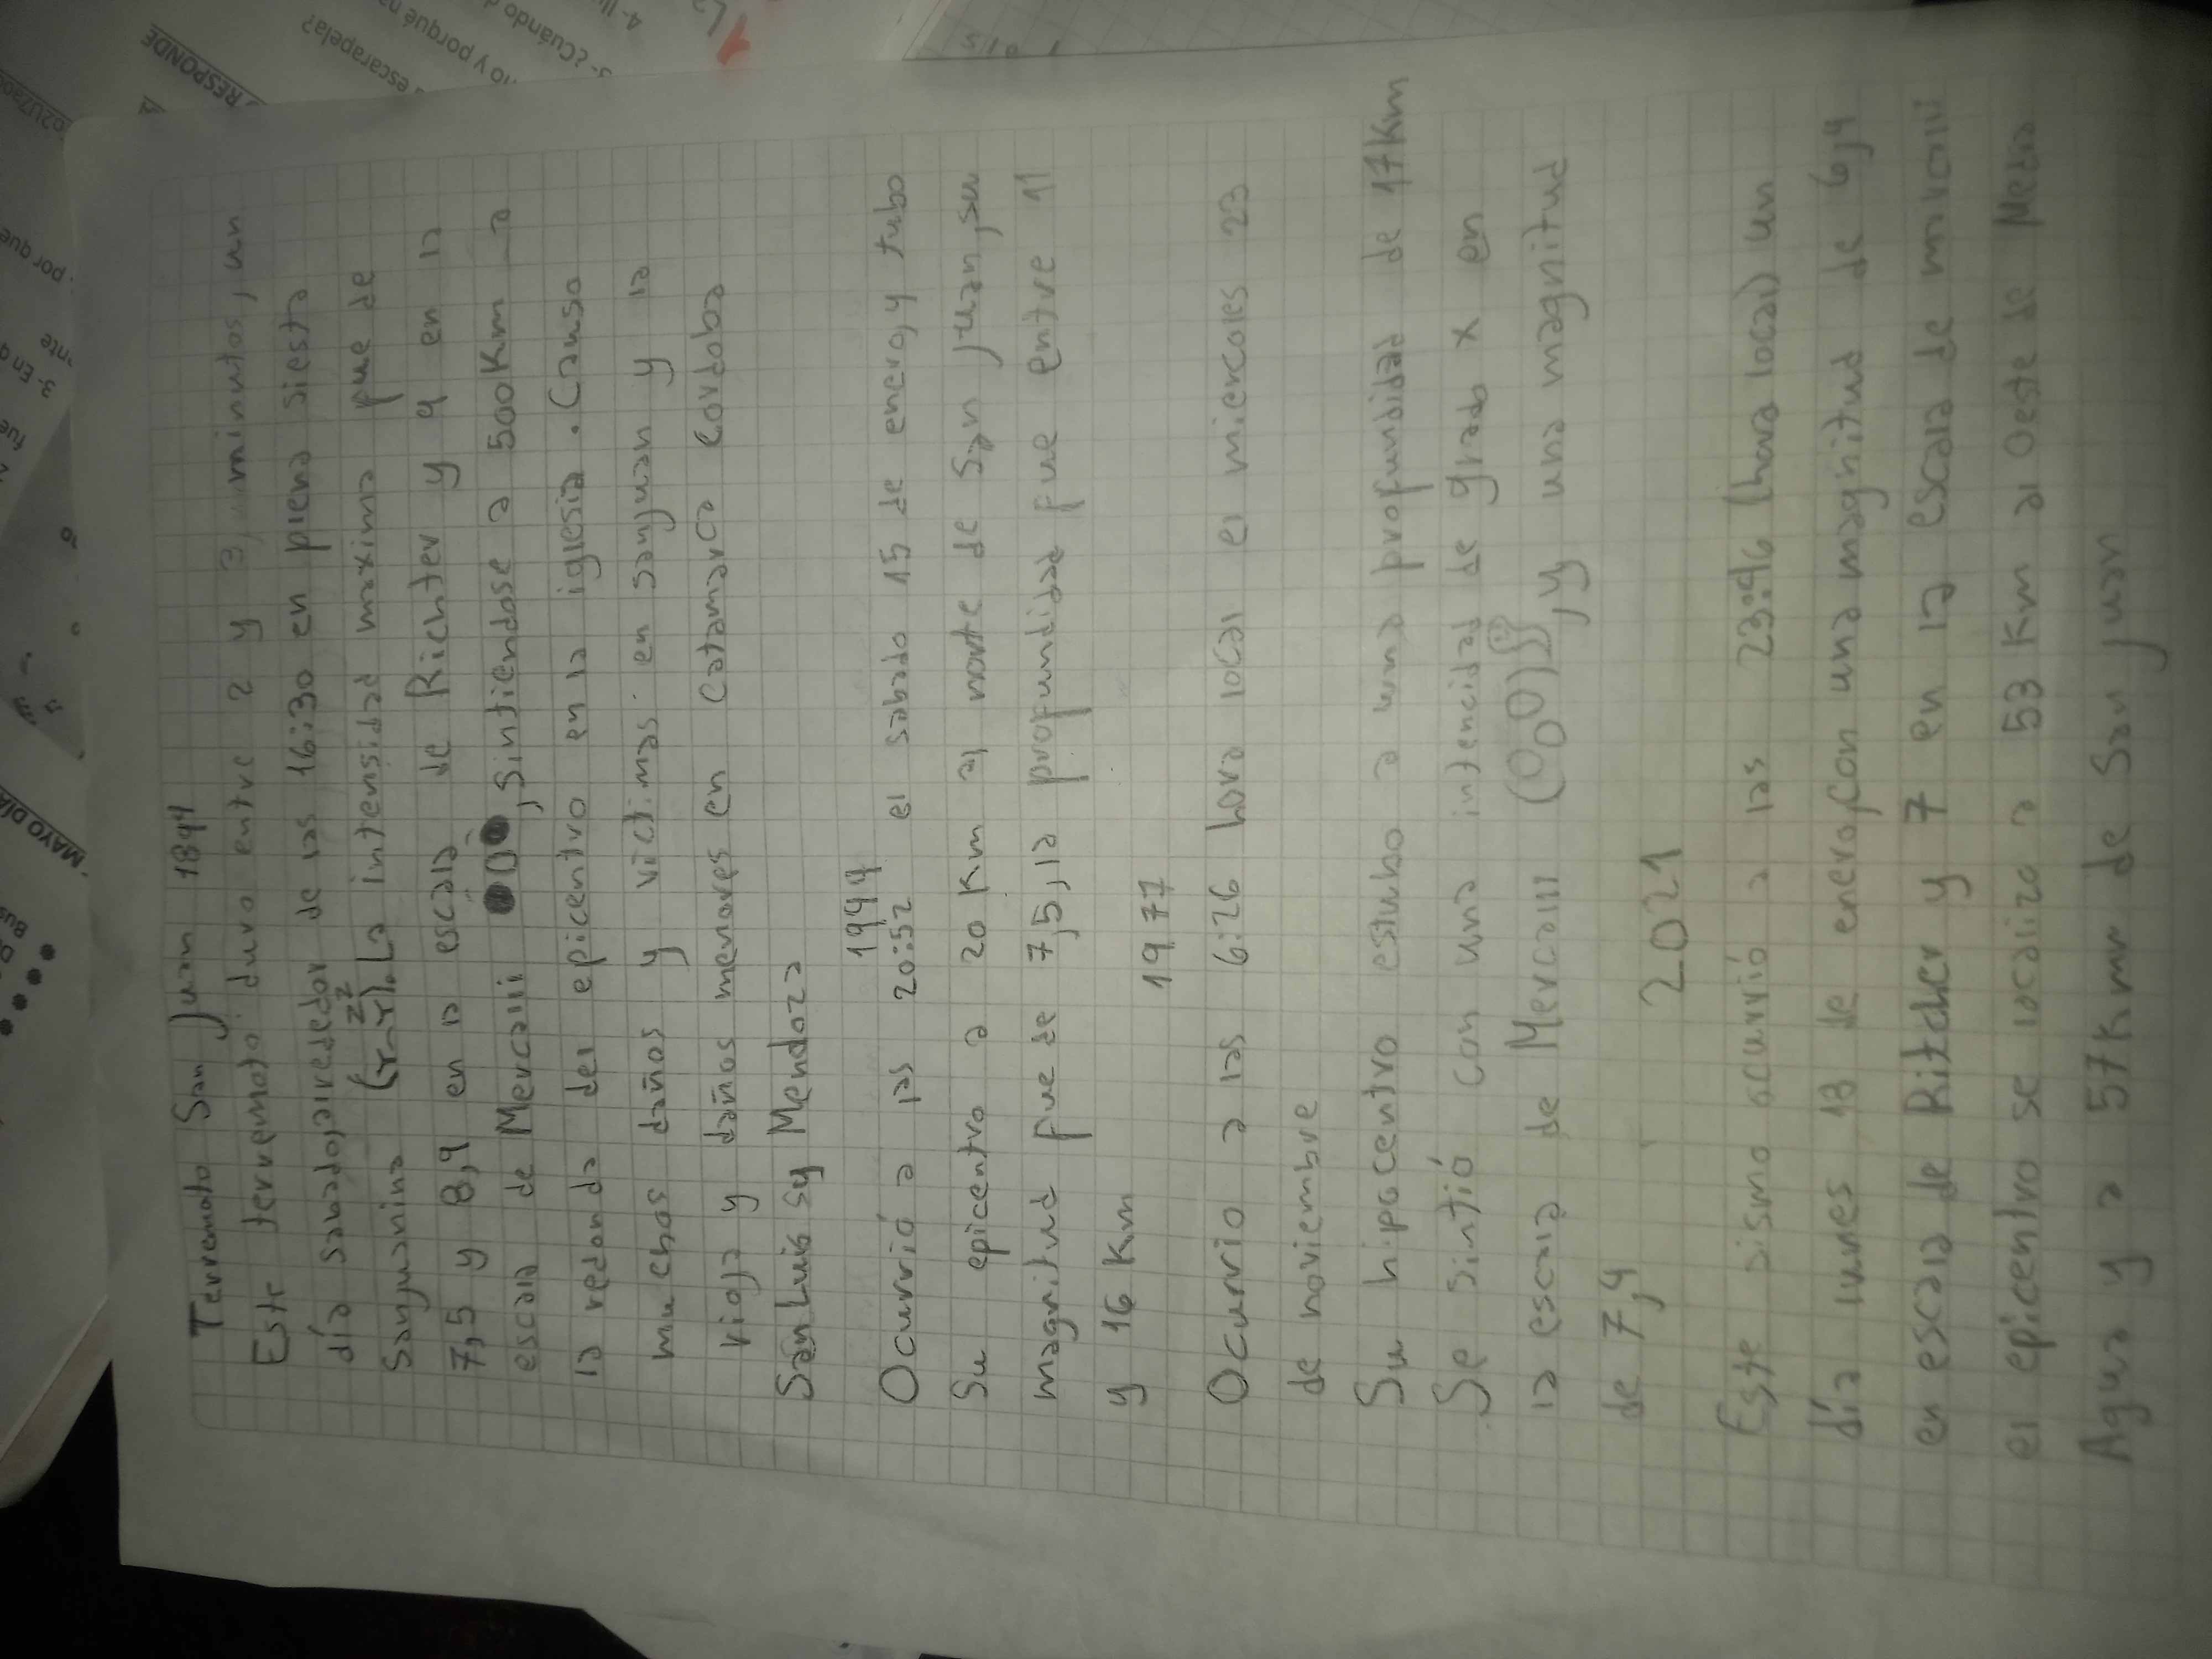 Terremoto San Juan 1894
Este terremoto duro entre 2 y 3, minutos, un
día sabado, alrededor de las 16:30 en plena siesta
Sanjuanina (Y-Y)zz. La intensidad maxima fue de
7,5 y 8,9 en la escala de Richter y 9 en la
escala de Mercalli, sintiendose a 500Km a
la redonda del epicentro en la iglesia. Causo
muchos daños y victimas en sanjuan y la
rioja y daños menores en Catamarca cordoba
San Luis y Mendoza
1944
Ocurrió a las 20:52 el sabado 15 de enero, y tubo
Su epicentro a 20 Km al norte de San juan, su
magnitud fue de 7,5, la profundidad fue entre 11
y 16 Km
1977
Ocurrio a las 6:26 hora local el miercoles 23
de noviembre
Su hipocentro estubo a una profundidad de 17Km
Se sintió con una intencidad de grado x en
la escala de Mercalli, y una magnitud
de 7,4
2021
Este sismo ocurrió a las 23:46 (hora local) un
día lunes 18 de enero, con una magnitud de 6,4
en escala de Ritcher y 7 en la escala de mircalli
el epicentro se localizo a 53 Km al Oeste de Media
Agua y a 57Km de San juan
RESPONDE
escarapela?
no y porqué
3- ¿Cuándo
por que
3- En
fue
MAYO DÍA